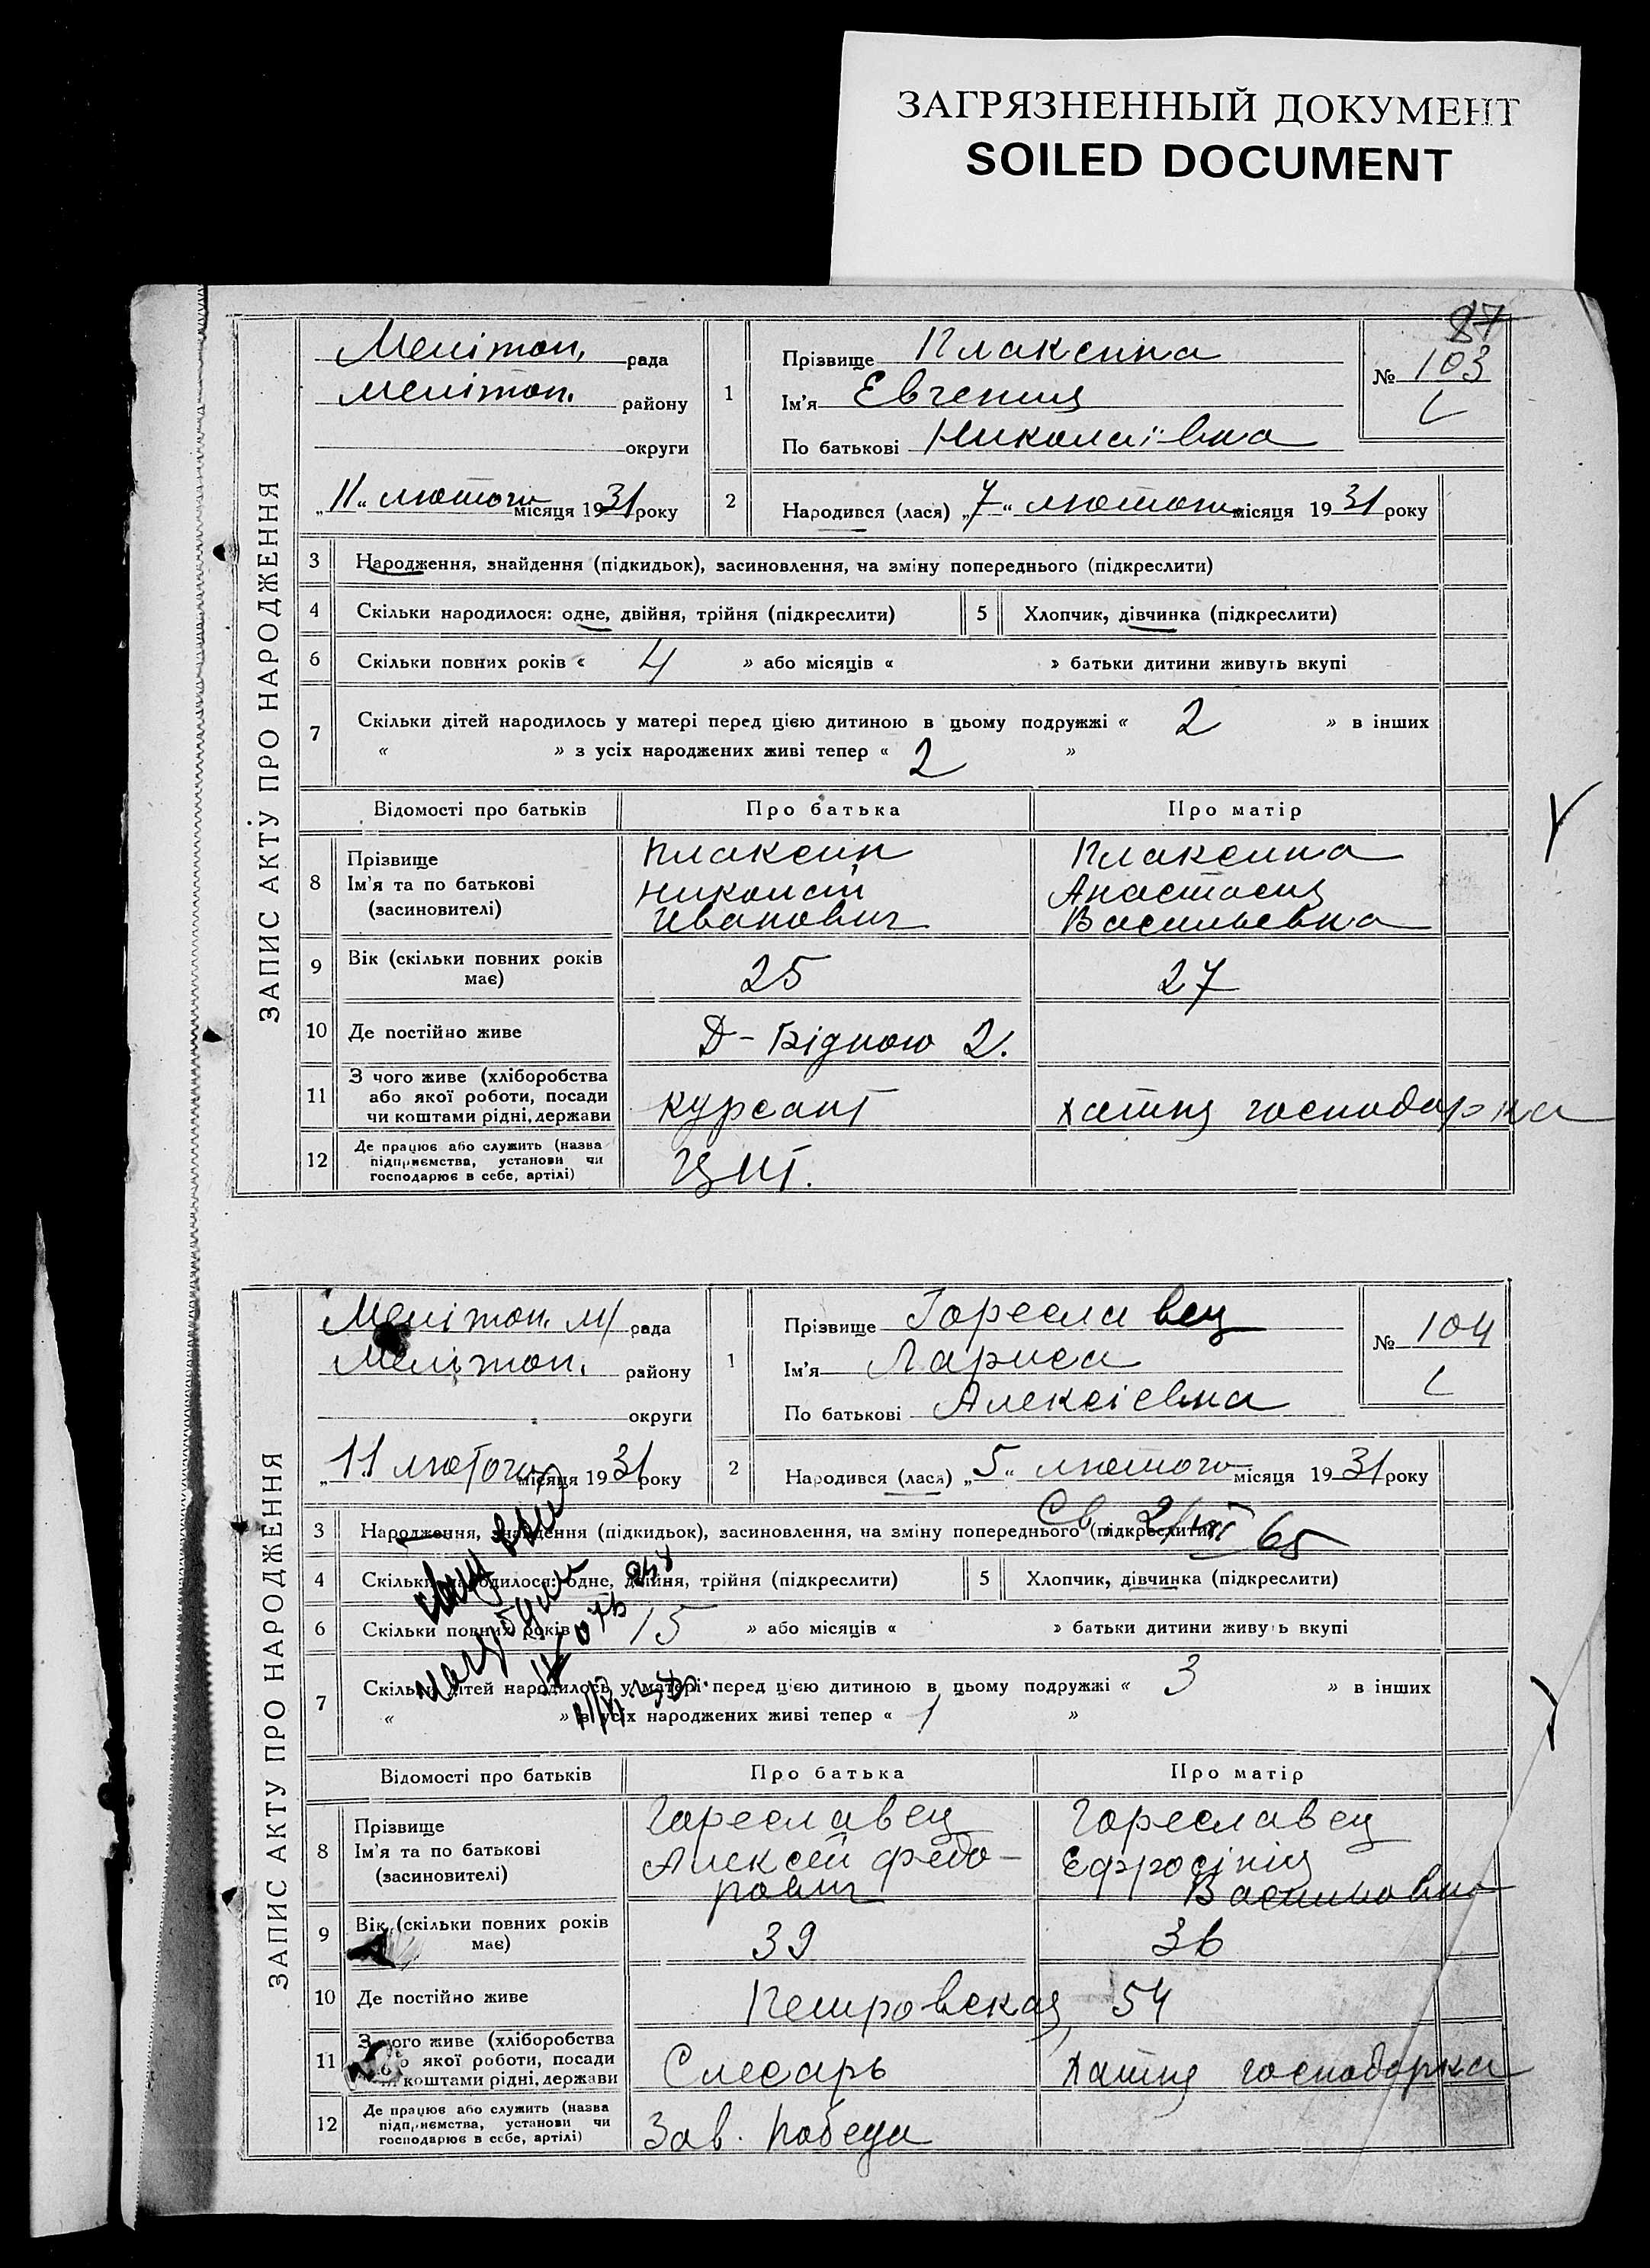 ЗАГРЯЗНЕННЫЙ ДОКУМЕНТ
SOILED DOCUMENT
87
ЗАПИС АКТУ ПРО НАРОДЖЕННЯ
Меліто́п. рада
Меліто́п. району
округи
„11“ лютого місяця 1931 року
1 Прізвище Плаксина
Ім'я Евгения
По батькові Николаівна
№ 103
2 Народився (лася) „7“ лютого місяця 1931 року
3 Народження, знайдення (підкидьок), засиновлення, на зміну попереднього (підкреслити)
4 Скільки народилося: одне, двійня, трійня (підкреслити) 5 Хлопчик, дівчинка (підкреслити)
6 Скільки повних років « 4 » або місяців « » батьки дитини живуть вкупі
7 Скільки дітей народилось у матері перед цією дитиною в цьому подружжі « 2 » в інших
« » з усіх народжених живі тепер « 2 »
Відомості про батьків Про батька Про матір
8 Прізвище Плаксин Плаксина
Ім'я та по батькові Николай Анастасия
(засиновителі) Иванович Васильевна
9 Вік (скільки повних років має) 25 27
10 Де постійно живе Д-Бідного 2.
11 З чого живе (хліборобства
або якої роботи, посади
чи коштами рідні, держави курсант хатня господарка
12 Де працює або служить (назва
підприємства, установи чи
господарює в себе, артілі) ЦИТ.
ЗАПИС АКТУ ПРО НАРОДЖЕННЯ
Меліто́п. м/ рада
Меліто́п. району
округи
„11 лютого місяця 1931 року
1 Прізвище Гореславец
Ім'я Лариса
По батькові Алексієвна
№ 104
2 Народився (лася) „5“ лютого місяця 1931 року
Св. 2/VII 65
3 Народження, знайдення (підкидьок), засиновлення, на зміну попереднього (підкреслити)
4 Скільки народилося: одне, двійня, трійня (підкреслити) 5 Хлопчик, дівчинка (підкреслити)
6 Скільки повних років 15 » або місяців « » батьки дитини живуть вкупі
7 Скільки дітей народилось у матері перед цією дитиною в цьому подружжі « 3 » в інших
« » з усіх народжених живі тепер « 1 »
Відомості про батьків Про батька Про матір
8 Прізвище Гореславец Гореславец
Ім'я та по батькові Алексей Федо- Ефросінія
(засиновителі) рович Васильовна
9 Вік (скільки повних років має) 39 36
10 Де постійно живе Петровская, 54
11 З чого живе (хліборобства
або якої роботи, посади
чи коштами рідні, держави Слесарь хатня господарка
12 Де працює або служить (назва
підприємства, установи чи
господарює в себе, артілі) Зав. Победа